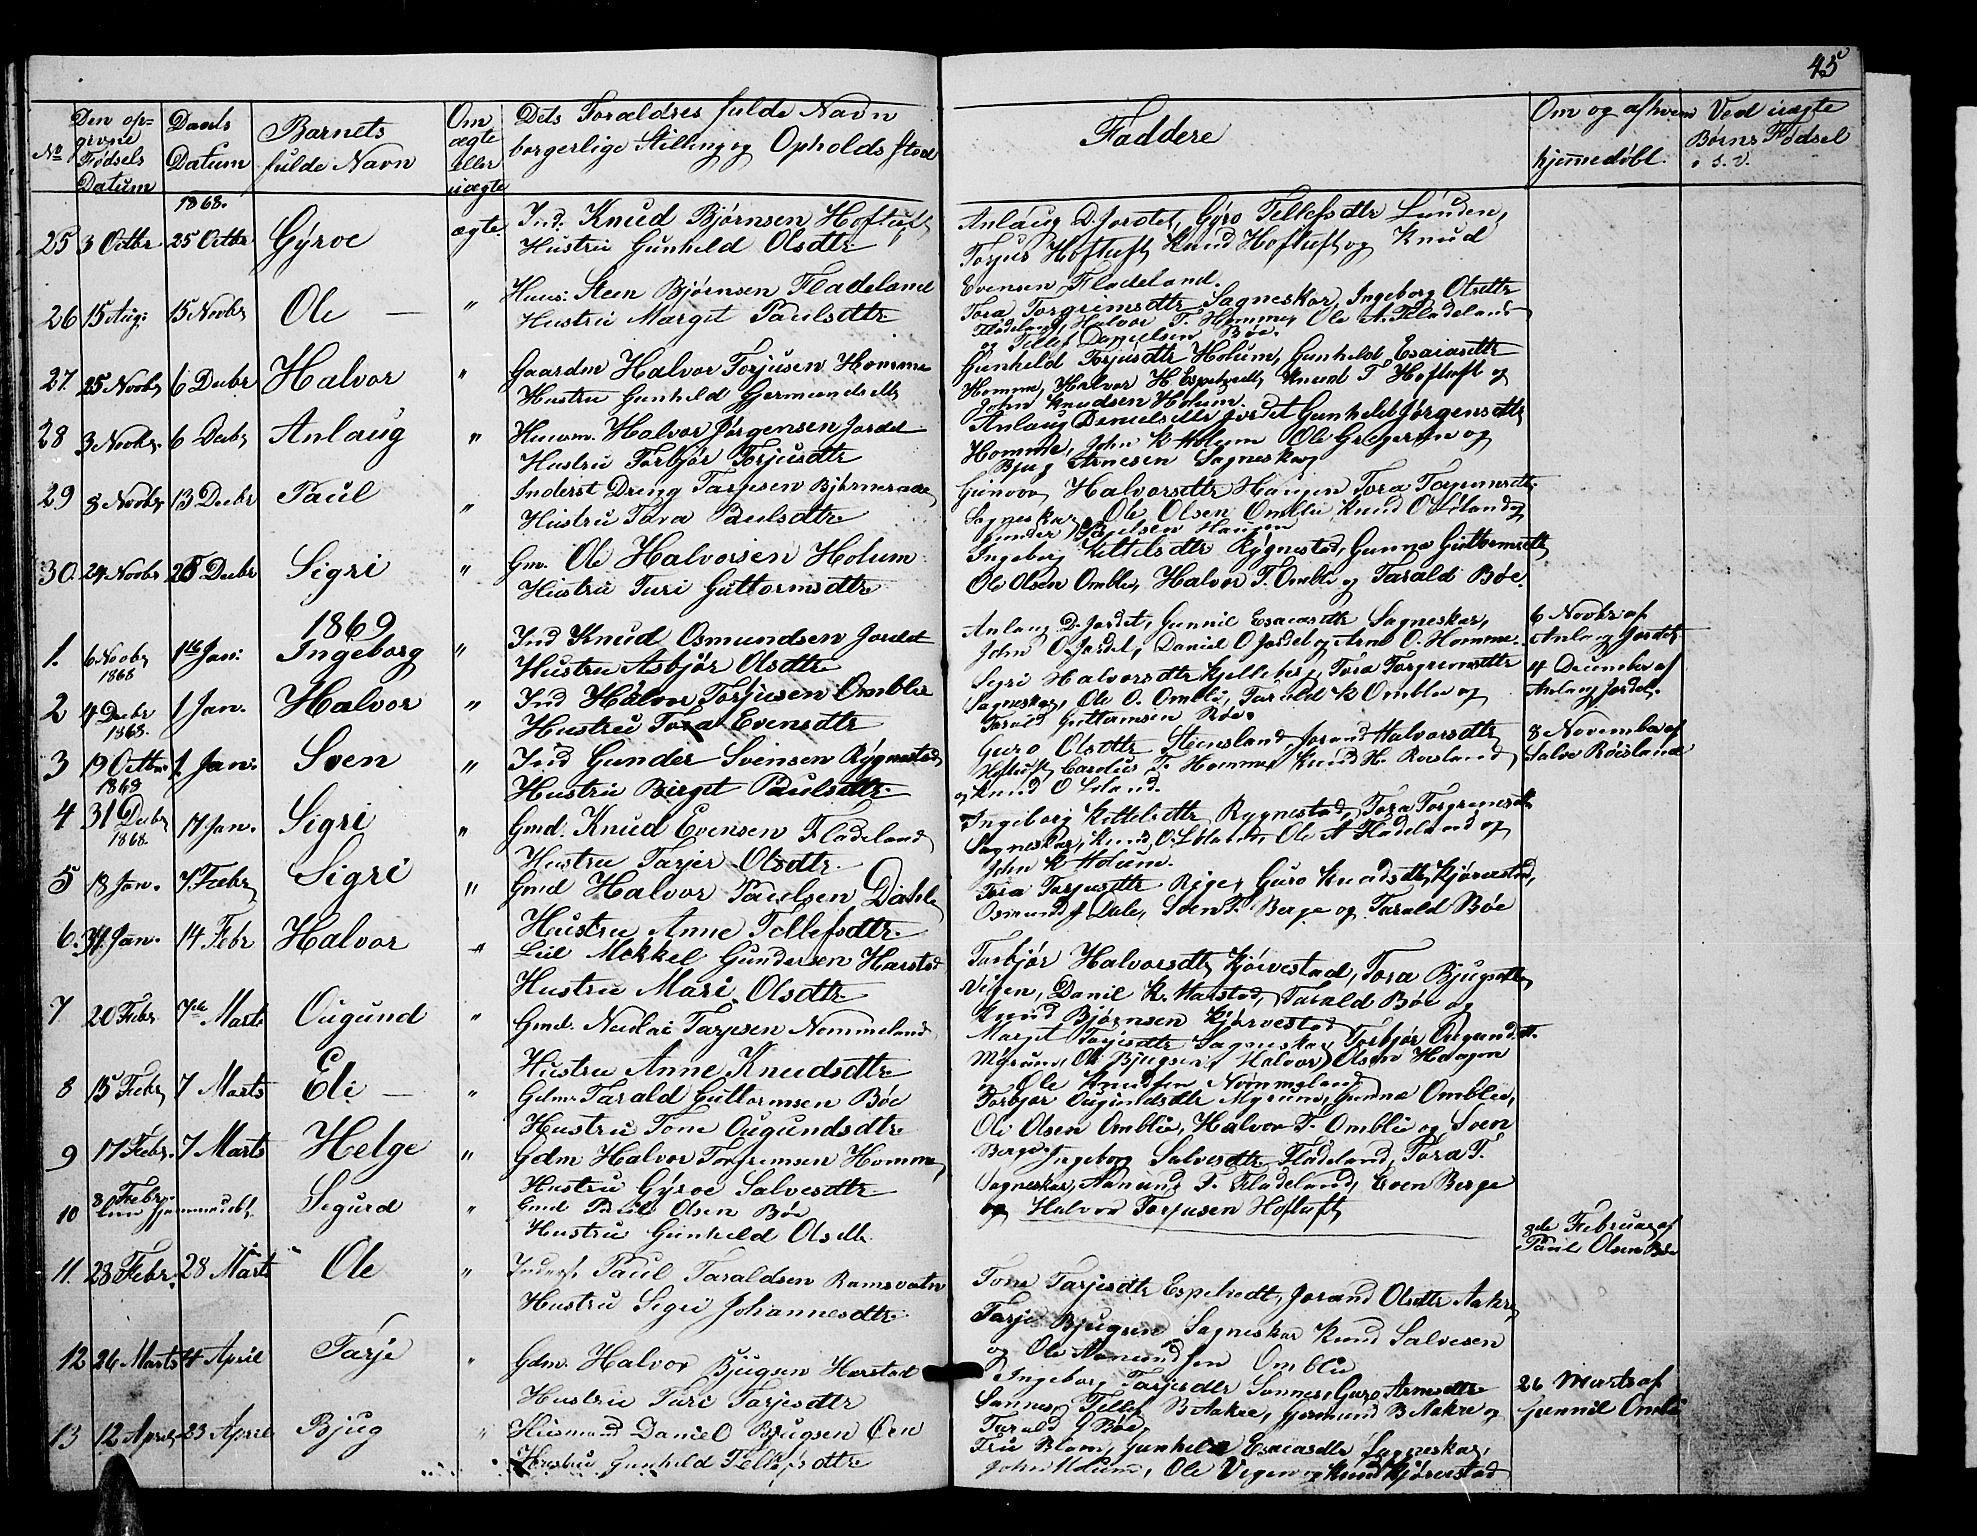 45
No
Den op-
givne
Fødsels
Datum
Daabs
Datum
Barnets
fulde Navn
Om
ægte
eller
uægte
Dets Forældres fulde Navn
borgerlige Stilling og Opholdssted
Faddere
Om og af hvem
hjemmedøbt
Ved uægte
Børns Fødsel
o. s. v.
1868.
25 3 Octbr 25 Octbr Gyroe ægte. Ind. Knud Bjørnsen Hoftuft
Hustru Gunheld Olsdtr
Anlaug D. Jordet, Gyro Tellefsdtr Lunden,
Torjus Hoftuft Knud Hoftuft og Knud
Evensen Fladeland.
26 15 Aug: 15 Novbr Ole — " Huus: Steen Bjørnsen Fladeland
Hustru Margit Paulsdtr
Tora Torgrimsdtr Sagneskar, Ingeborg Olsdtr
Fladeland, Halvor T. Homme, Ole A. Fladeland
og Tellef Danielsen Bøe.
27 25 Novbr 6 Decbr Halvor " Gaardm Halvor Torjusen Homme
Hustru Gunheld Germundsdtr
Gunheld Torjusdtr Holum, Gunheld Esaiasdtr
Homme, Halvor H Espetvedt, Knud T Hoftuft og
John Knudsen Holum.
28 3 Novbr. 6 Decbr Anlaug " Huusm. Halvor Jørgensen Jordet
Hustru Torbjør Torjusdtr
Anlaug Danielsdtr Jordet Gunheld Jørgensdtr
Homme, John K Holum Ole Gregersen og
Bjug Arnesen Sagneskar
29 8 Novbr 13 Decbr Paul " Inderst Dreng Tarjesen Bjørnaraae
Hustru Tara Paulsdtr
Gunvor Halvorsdtr Haugen Tora Torgrimsdtr
Sagneskar, Ole Olsen Omblie Knud O Løland og
Gunder Paulsen Haugen
30. 24 Novbr 28 Decbr Sigri " Gm. Ole Halvorsen Holum
Hustru Turi Guttormsdtr
Ingeborg Kittelsdtr Rygnestad, Gunne Guttormsdtr
Ole Olsen Omblie, Halvor T. Omblie og Tarald Bøe.
1869
1. 6 Novbr 1868 1ste Jan: Ingeborg " Ind Knud Osmundsen Jordet
Hustru Asbjør Olsdtr
Anlaug D. Jordet, Gunnil Esaiasdtr Sagneskar,
John O. Jordet, Daniel O Jordet og Arne O. Homme.
6 Novbr af
Anlaug Jordet
2 4 Decbr 1868. 1 Jan. Halvor " Ind Halvor Torjusen Omblie
Hustru Tora Evensdtr
Sigri Halvorsdtr Kjelleberg, Tora Torgrimsdtr
Sagneskar, Ole O. Omblie, Tarald K Omblie og
Tarald Guttormsen Bøe.
4 December af
Anlaug Jordet.
3 19 Octbr 1868 1 Jan: Sven " Ind Gunder Svensen Rygnestad
Hustru Birget Paulsdtr.
Guro Olsdtr Steensland, Jorand Halvorsdtr
Hoftuft Carolus T. Homme, Knud H. Roesland,
og Knud O Løland.
8 November af
Salve Røisland
4 31 Decbr 1868. 17 Jan. Sigri " Gmd. Knud Evensen Fladeland
Hustru Tarjer Olsdtr.
Ingeborg Kittelsdtr Rygnestad, Tora Torgrimsdtr
Sagneskar, Knud O. Løland, Ole A Fladeland og
John K Holum.
5 18 Jan. 7 Febr Sigri " Gmd Halvor Paulsen Dahle
Hustru Anne Tellefsdtr.
Tora Tarjusdtr Rige, Guro Knudsdtr Kjørvestad,
Osmund J Dale, Sven T. Berge og Tarald Bøe
6. 31 Jan. 14 Febr Halvor " Leil Mekkel Gundersen Harstad
Hustru Mari Olsdtr
Torbjør Halvorsdtr Kjørvestad, Tora Bjugsdtr
Vigen, Daniel K. Harstad, Tarald Bøe og
Knud Bjørnsen Kjørvestad
7 20 Febr 7de Marts Ougund " Gmd. Nicolai Tarjesen Nommeland
Hustru Anne Knudsdtr
Margit Tarjesdtr Sagneskar, Torbjør Ougundsdtr.
Myrum, Ole Bjugsen, Halvor Olsen Haugen
og Ole Knudsen Nommeland
8 15 Febr 7 Marts Eli — " Gdm. Tarald Guttormsen Bøe
Hustru Tone Ougundsdtr
Torbjør Ougundsdtr Myrum, Gunne Omblie,
Ole Olsen Omblie, Halvor T. Omblie og Sven
Berge.
9 17 Febr. 7 Marts Helge " Gdm Halvor Torjusen Homme
Hustru Gyroe Salvesdtr
Ingeborg Salvesdtr Fladeland, Tora T.
Sagneskar, Aanund T. Fladeland, Even Berge
og Halvor Torjusen Hoftuft
10 8 Febr. Segurd " Gmd Paul Olsen Bøe
Hustru Gunheld Olsdtr
8de Februar af
Paul Olsen Bøe
11. 28 Febr. 28 Marts Ole " Inderst, Paul Taraldsen Ramsvatn
Hustru Sigri Johannesdtr
Tone Tarjesdtr Espetvedt, Jorand Olsdtr Aakre,
Tarje Bjugsen Sagneskar Knud Salvesen
og Ole Aanundsen Omblie
12 26 Marts 4 April Tarje " Gdm. Halvor Bjugsen Harstad
Hustru Turi Tarjesdtr
Ingeborg Tarjesdtr Sannes, Guro Arnesdtr
Sannes, Tellef B Aakre, Germund B Aakre og
Tarald G Bøe,
26 Marts af
Gunnil Omblie
13 12 April 23 April Bjug " Huusmand Daniel Bjugsen Øen
Hustru Gunheld Tellefsdtr
Fru Blom, Gunheld Esaiasdtr Sagneskar,
John Holum, Ole Vigen og Knud Kjørvestad